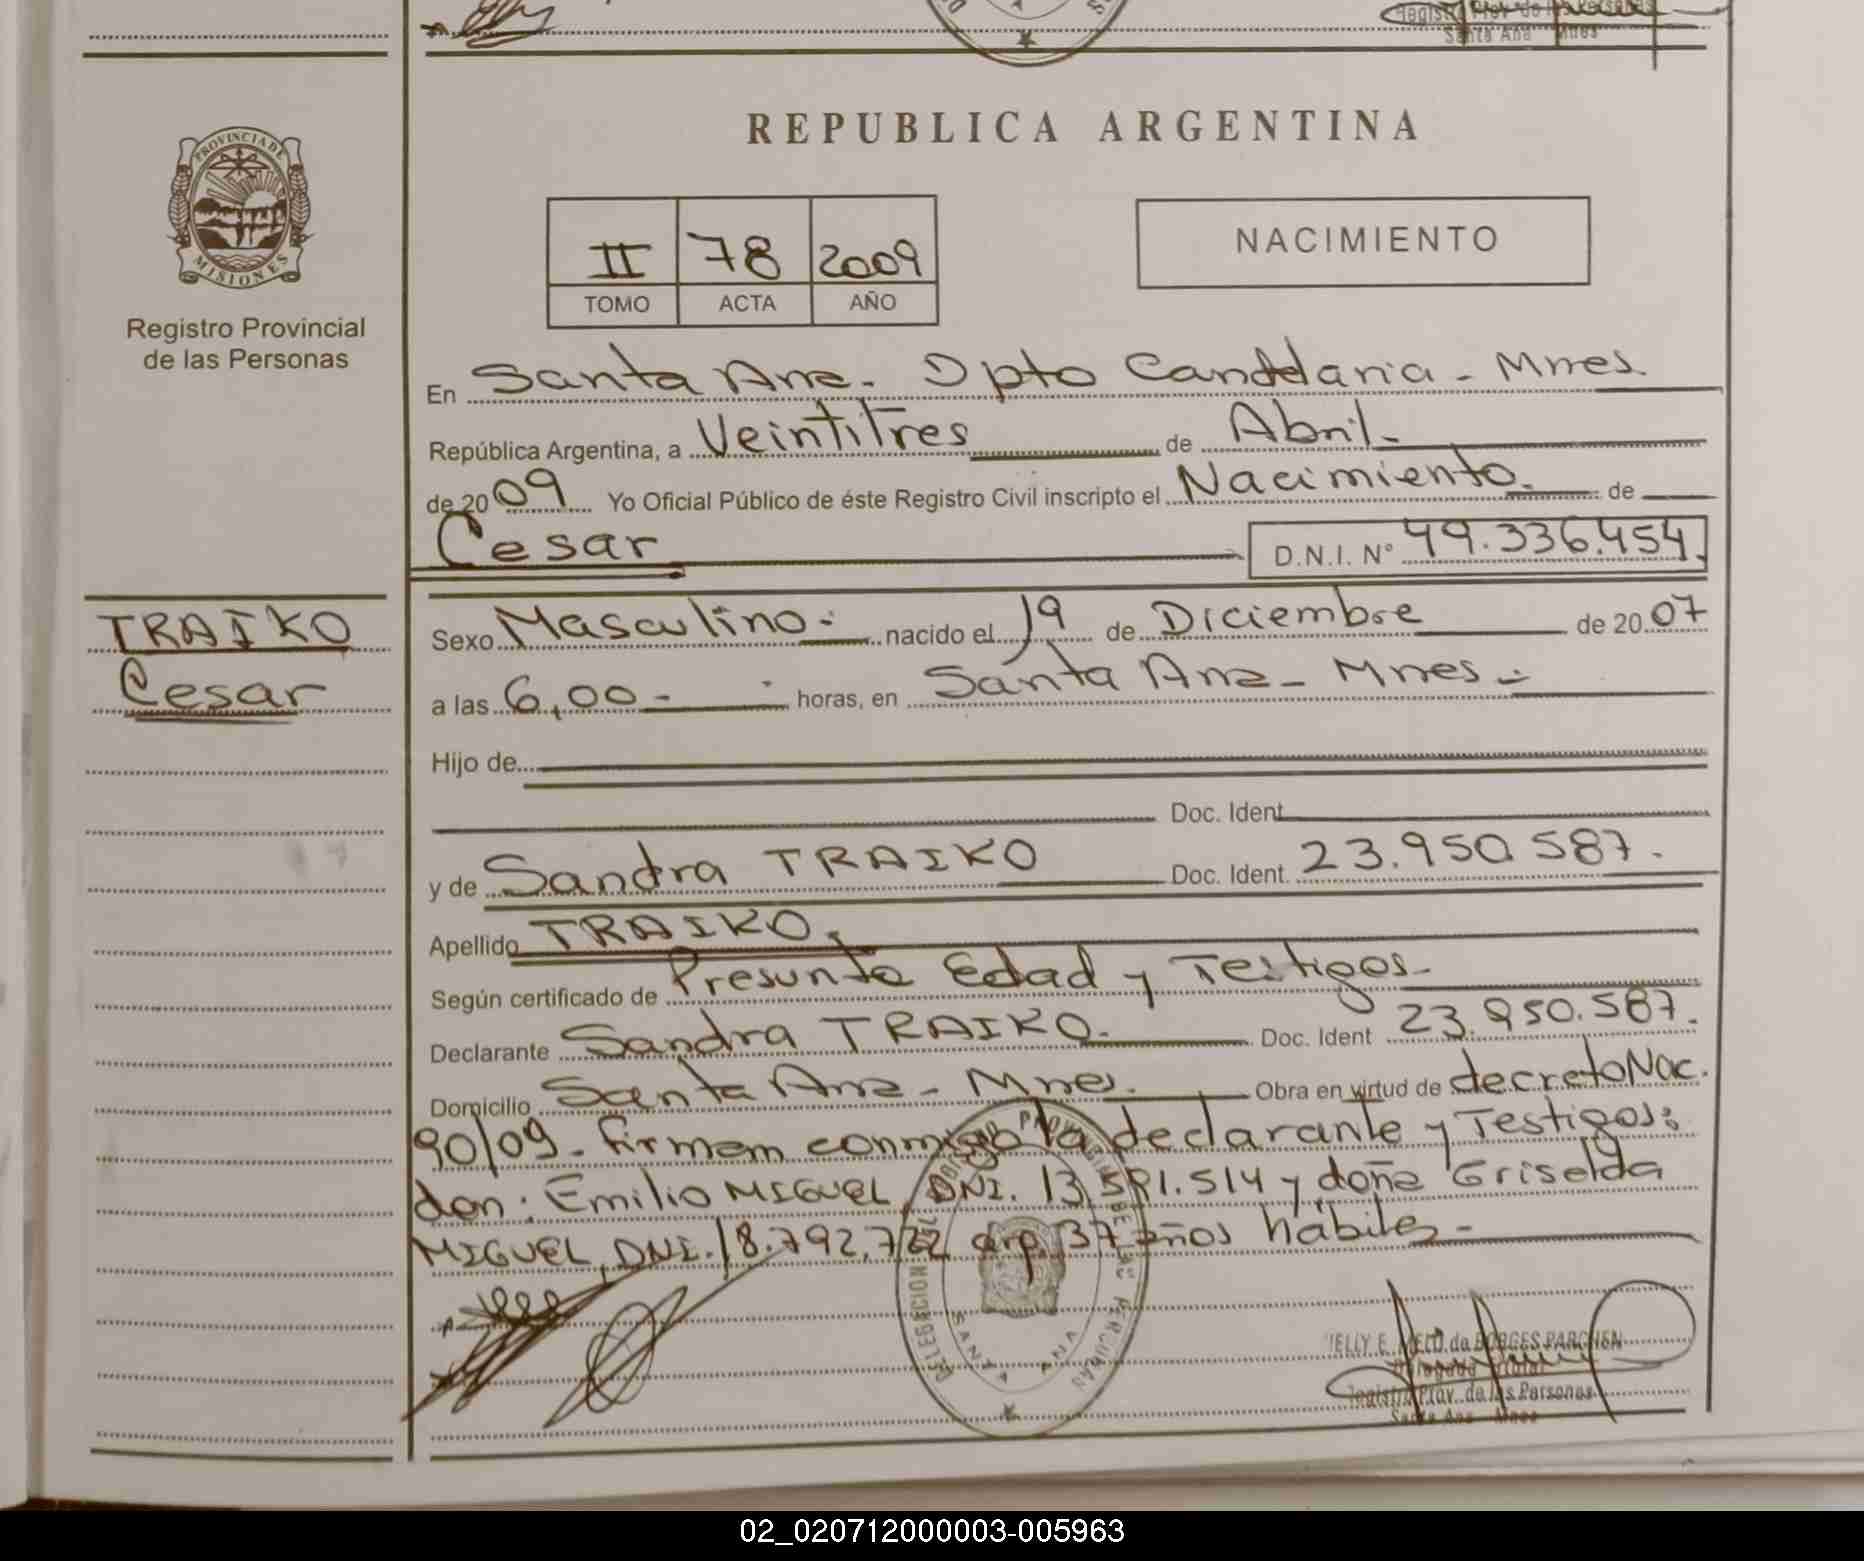 Registro Prov. de las Personas
Santa Ana Mnes
PROVINCIA DE
MISIONES
Registro Provincial
de las Personas
REPUBLICA ARGENTINA
II 78 2009
TOMO ACTA AÑO
NACIMIENTO
En Santa Ana. Dpto Candelaria - Mnes
República Argentina, a Veintitres de Abril-
de 2009 Yo Oficial Público de éste Registro Civil inscripto el Nacimiento. de
Cesar D.N.I. N° 49.336.454.
TRAIKO
Cesar
Sexo Masculino.- nacido el 19 de Diciembre de 2007
a las 6,00- horas, en Santa Ana - Mnes.-
Hijo de
Doc. Ident.
y de Sandra TRAIKO Doc. Ident. 23.950.587.
Apellido TRAIKO.
Según certificado de Presunta Edad y Testigos-
Declarante Sandra TRAIKO. Doc. Ident 23.950.587.
Domicilio Santa Ana - Mnes. Obra en virtud de decreto Nac.
90/09. Firman conmigo la declarante y Testigos:
don: Emilio MIGUEL, DNI. 13.591.514 y doña Griselda
MIGUEL, DNI. 18.792.722 arg. 37 años hábiles-
DELEGACION DEL REGISTRO PROVINCIAL DE LAS PERSONAS
SANTA ANA
NELLY E. MELO de BORGES PARCHEN
Delegada Titular
Registro Prov. de las Personas
Santa Ana Mnes
02_020712000003-005963